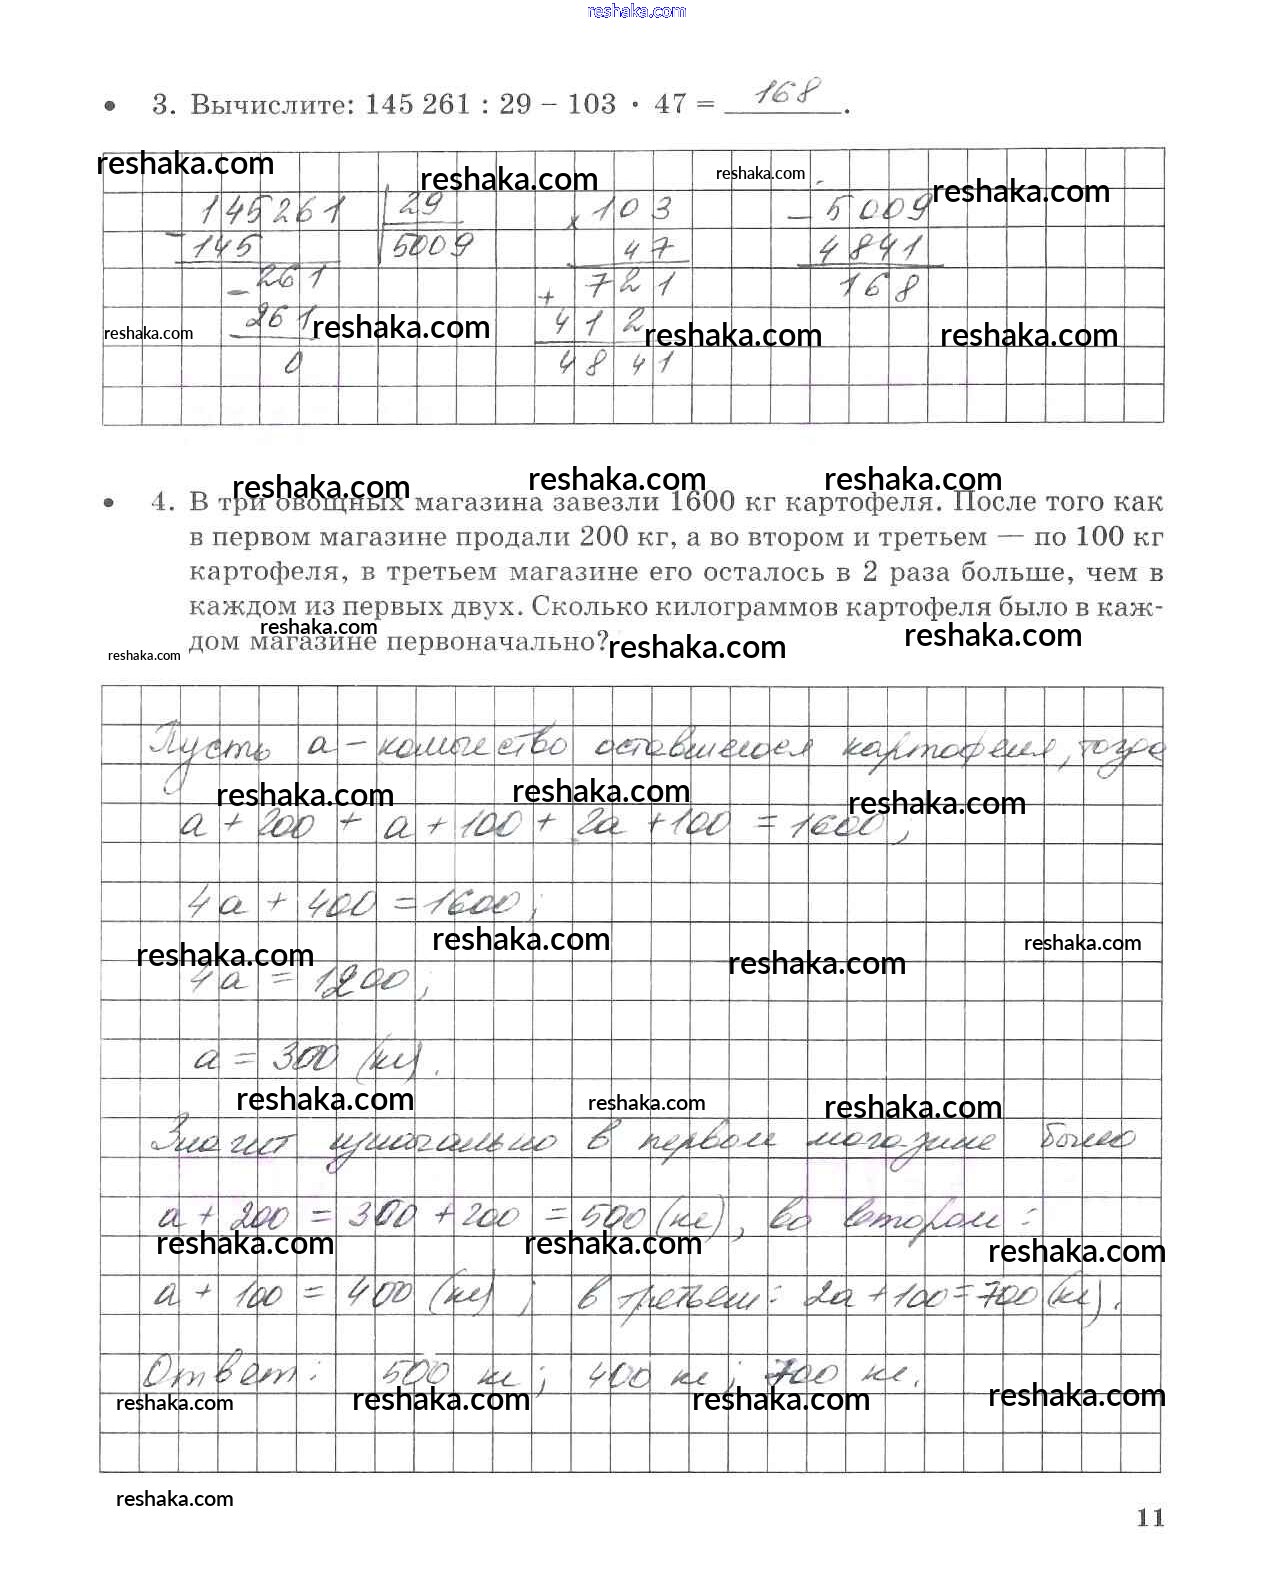 reshaka.com
• 3. Вычислите: 145 261 : 29 – 103 · 47 = 168.
reshaka.com reshaka.com reshaka.com reshaka.com
145261 29 × 103 – 5009
– 145 5009 47 4841
– 261 + 721 168
261 412
reshaka.com reshaka.com reshaka.com reshaka.com
0 4841
reshaka.com reshaka.com reshaka.com
• 4. В три овощных магазина завезли 1600 кг картофеля. После того как
в первом магазине продали 200 кг, а во втором и третьем — по 100 кг
картофеля, в третьем магазине его осталось в 2 раза больше, чем в
каждом из первых двух. Сколько килограммов картофеля было в каж-
дом магазине первоначально?
reshaka.com reshaka.com reshaka.com reshaka.com
Пусть а – количество оставшегося картофеля, тогда
reshaka.com reshaka.com reshaka.com
а + 200 + а + 100 + 2а + 100 = 1600;
4а + 400 = 1600;
reshaka.com reshaka.com reshaka.com reshaka.com
4а = 1200;
а = 300 (кг).
reshaka.com reshaka.com reshaka.com
Значит изначально в первом магазине было
а + 200 = 300 + 200 = 500 (кг), во втором:
reshaka.com reshaka.com reshaka.com
а + 100 = 400 (кг); в третьем: 2а + 100 = 700 (кг).
Ответ: 500 кг; 400 кг; 700 кг.
reshaka.com reshaka.com reshaka.com reshaka.com
reshaka.com
11